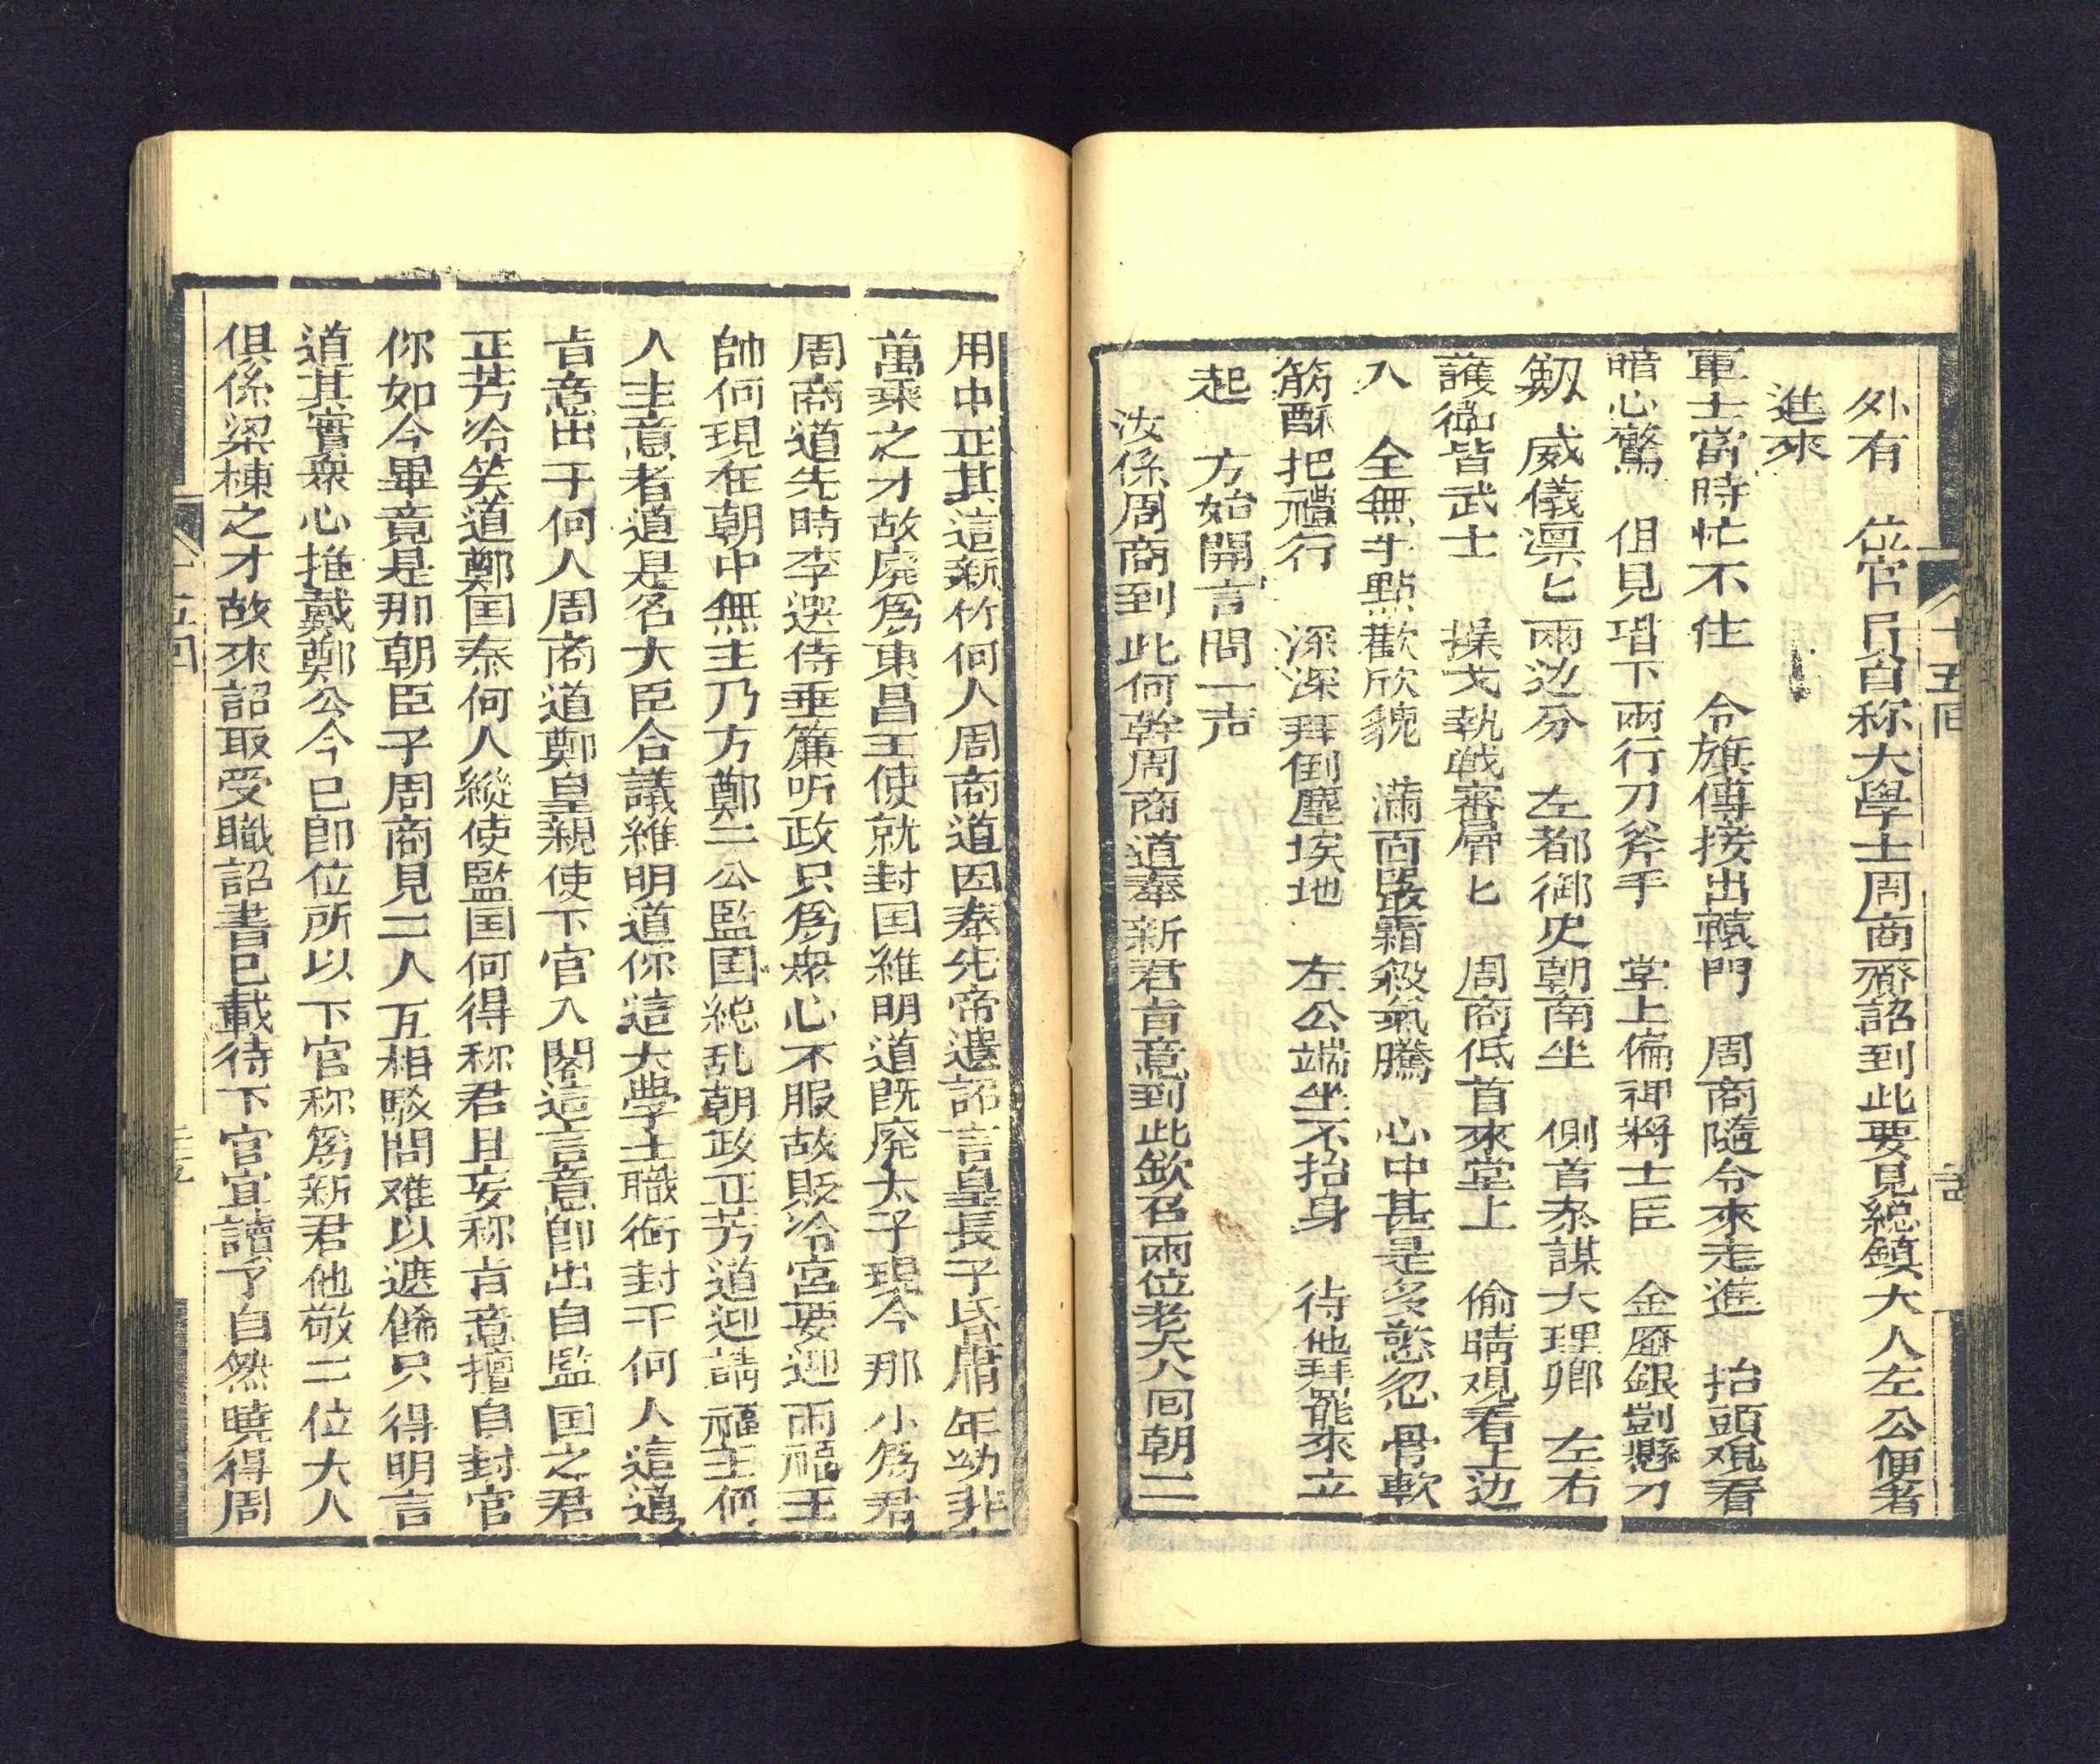 外有 位官員自称大學士周商齎詔到此要見総鎮大人左公便着
進來
軍士當時忙不住 令旗傳接出轅門 周商隨令來走進 抬頭覌看
暗心驚 但見堦下兩行刀斧手 堂上偏裨將士臣 金壓銀剴懸刀
劔 威儀凛匕兩边分 左都御史朝南坐 側首泰謀大理卿 左右
護衞皆武士 操戈執戟審層匕 周商低首來堂上 偷睛覌看上边
人 全無半點歡欣貌 滿面嚴霜殺氣騰 心中甚是多慫忽 骨軟
筋酥把禮行 深深拜倒塵埃地 左公端坐不抬身 待他拜罷來立
起 方始開言問一声
汝係周商到此何幹周商道奉新君旨意到此欽召兩位老大人囘朝二
用中正其這新竹何人周商道因奉先帝遺詔言皇長子氏庸年幼非
萬乘之才故廃爲東昌王使就封囯維明道既廃太子現今那小爲君
周商道先時李選侍垂簾听政只爲衆心不服故貶冷宮要迎兩福王
帥何現在朝中無主乃方鄭二公監囯総乱朝政正芳道迎請福主何
人主意者道是名大臣合議維明道你這大學士職銜封于何人這道
旨意出于何人周商道鄭皇親使下官入閣這言意卽出自監囯之君
正芳冷笑道鄭囯泰何人縱使監囯何得称君且妄称旨意擅自封官
你如今畢竟是那朝臣子周商見二人互相駁問难以遮餙只得明言
道其實衆心推戴鄭公今已卽位所以下官称爲新君他敬二位大人
俱係梁棟之才故來詔取受職詔書已載待下官宣讀了自然曉得周
十五囘